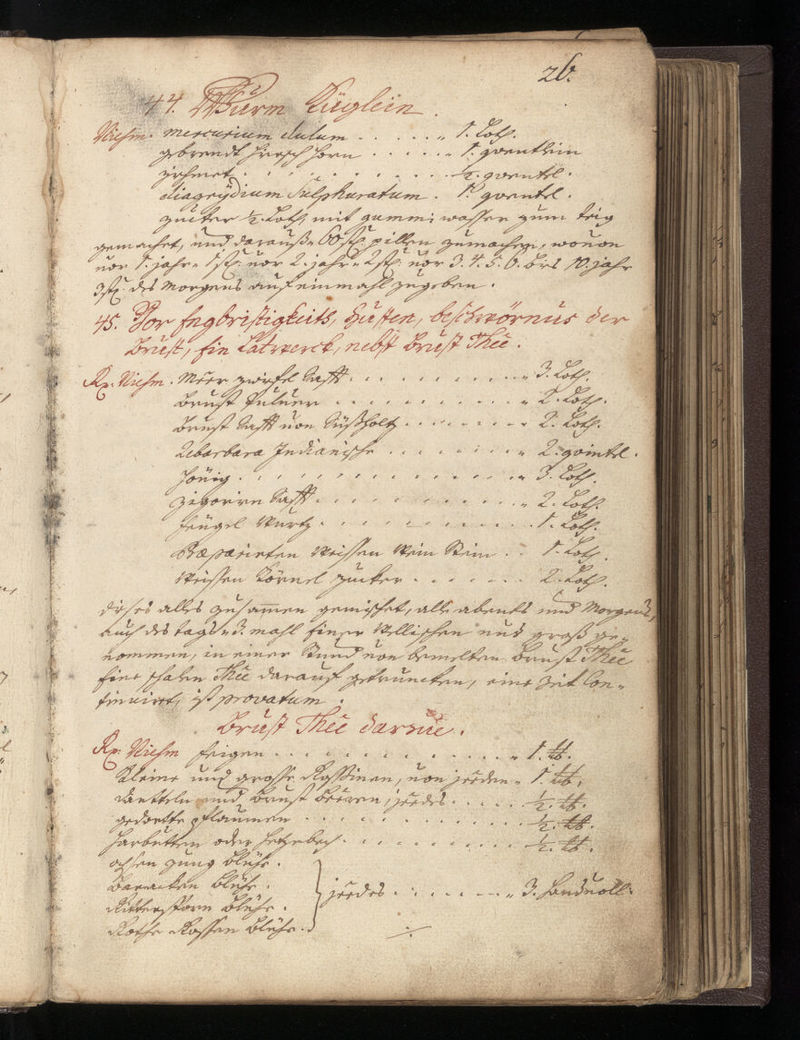 26.
44. Wurm Küglein.
Niehm. mercurium dulum . . . . . . „ 1. Loth.
gebrendt hirsch horn . . . . . . „ 1. quenthin
zithmet . . . . . . . . . . . ½. quentl.
diagrÿdium Sulphuratum . 1. quentl.
zucker ½. Loth, mit gummi wasser zum teig
gemachet, und darauß 60 stk. pillen zumachen, wovon
vor 1. jahr „ 1 stk. vor 2. jahr „ 2 stk. vor 3. 4. 5. 6. bis 10. jahr
3 stk. des Morgens auf einmahl zugeben.
45. Vor Engbristigkeits, Husten, beschwörnus der
Brust, Ein Latwerck, nebst Brust Thée.
Rx. Niehm. Méer zwifel Safft . . . . . . . . . „ 3. Loth.
Brust Pulver . . . . . . . . . . „ 2. Loth.
Brust Safft von Süßholtz . . . . . . „ 2. Loth.
Rbarbara Indianische . . . . . . . „ 2. quintel.
Hönig . . . . . . . . . . . . . „ 3. Loth.
Zigorien Safft . . . . . . . . . . „ 2. Loth.
Engel Wurtz . . . . . . . . . . . 1. Loth.
Præparirten Weissen Wein Stein . . 1. Loth.
Weissen Körnel zucker . . . . . . . 2. Loth.
dieses alles zusammen gemischet, alle abents und Morgens,
auch des tags 3. mahl Einer Wellischen nus groß ge-
nommen, in einer Stund von bemelten Brust Thée
Eine schalen Thée darauf getruncken, eine Zeit Con-
tinuiret, ist provatum.
Brust Thée darzue.
Rx. Niehm Feigen . . . . . . . . . . . . . „ 1. ℔.
Kleine und grosse Rossinen, von jeeden „ 1. ℔.
dattteln und Brust Béeren, jeedes . . . . . ½. ℔.
gedorte pflaumen . . . . . . . . . . . ½. ℔.
Harbutten oder Hetschebetsch . . . . . . . ½. ℔.
ochsen zung blühe.
blühe.
Ritterssporn blühe. } jeedes . . . . . . . „ 3. Handvoll.
Rothe Rossen blühe.